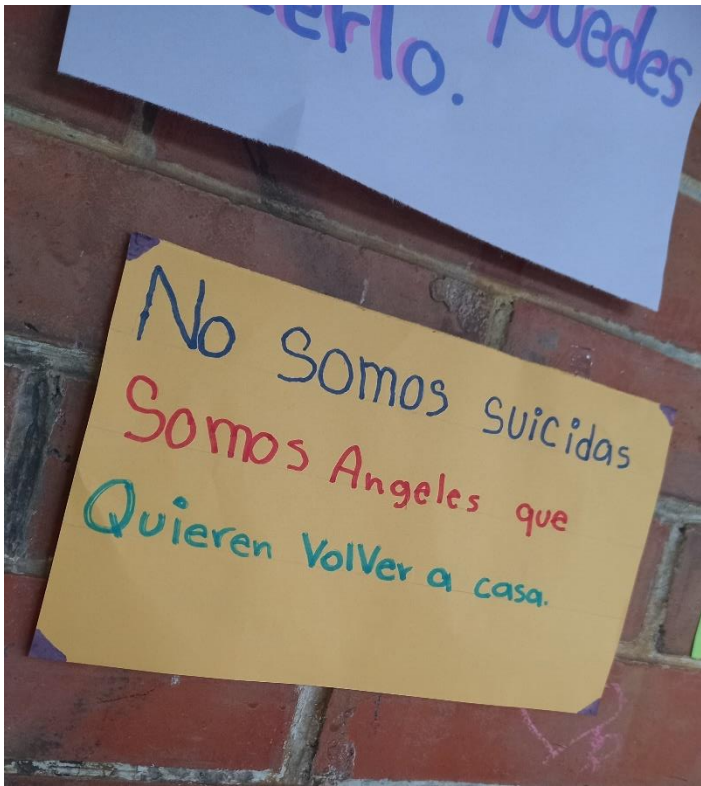 puedes
erlo.
No Somos suicidas
Somos Angeles que
Quieren Volver a casa.